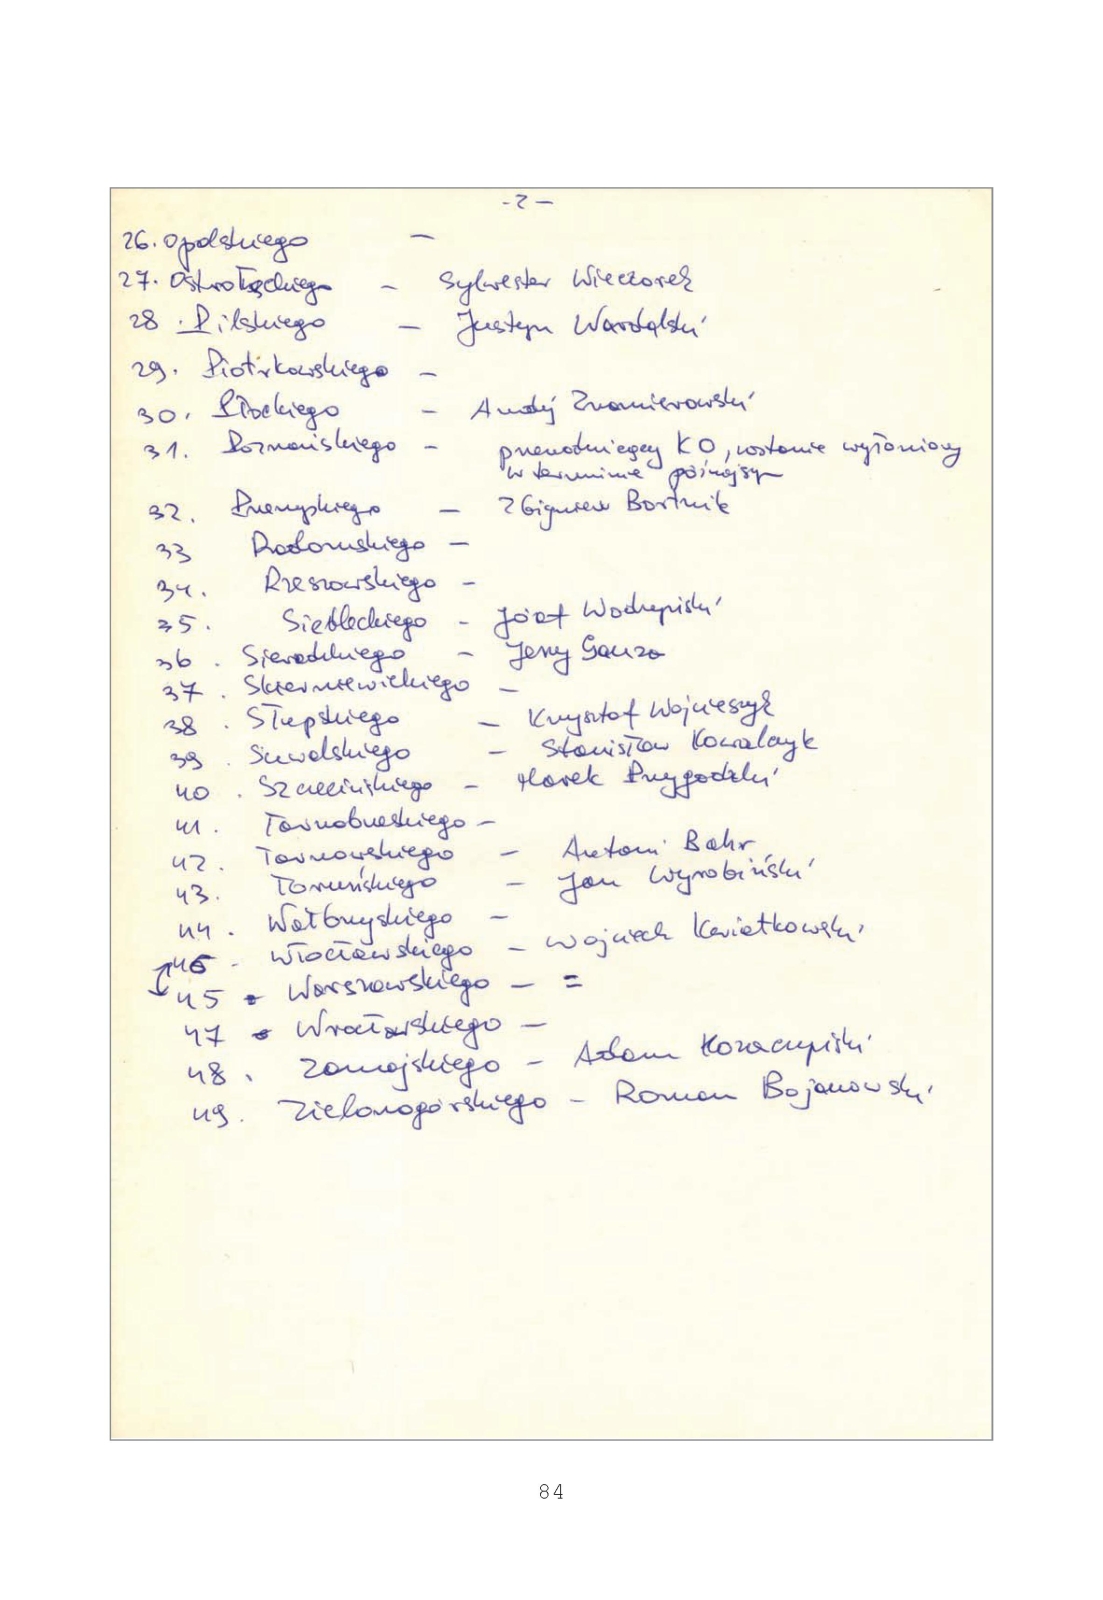 - 2 -
26. Opolskiego -
27. Ostrołęckiego - Sylwester Wieczorek
28. Pilskiego - Justyn Wardalski
29. Piotrkowskiego -
30. Płockiego - Andrzej Znamierowski
31. Poznańskiego - przewodniczący KO, zostanie wyłoniony
w terminie późniejszym
32. Przemyskiego - Zbigniew Bortnik
33 Radomskiego -
34. Rzeszowskiego -
35. Siedleckiego - Józef
36. Sieradzkiego - Jerzy
37. Skierniewickiego -
38. Słupskiego - Krzysztof
39. Suwalskiego - Stanisław Kowalczyk
40. Szczecińskiego - Marek Przygodzki
41. Tarnobrzeskiego -
42. Tarnowskiego - Antoni Bahr
43. Toruńskiego - Jan Wyrobiński
44. Wałbrzyskiego -
46 - Włocławskiego - Wojciech Kwiatkowski
45 Warszawskiego - =
47 Wrocławskiego -
48. Zamojskiego - Adam
49. Zielonogórskiego - Roman Bojanowski
84